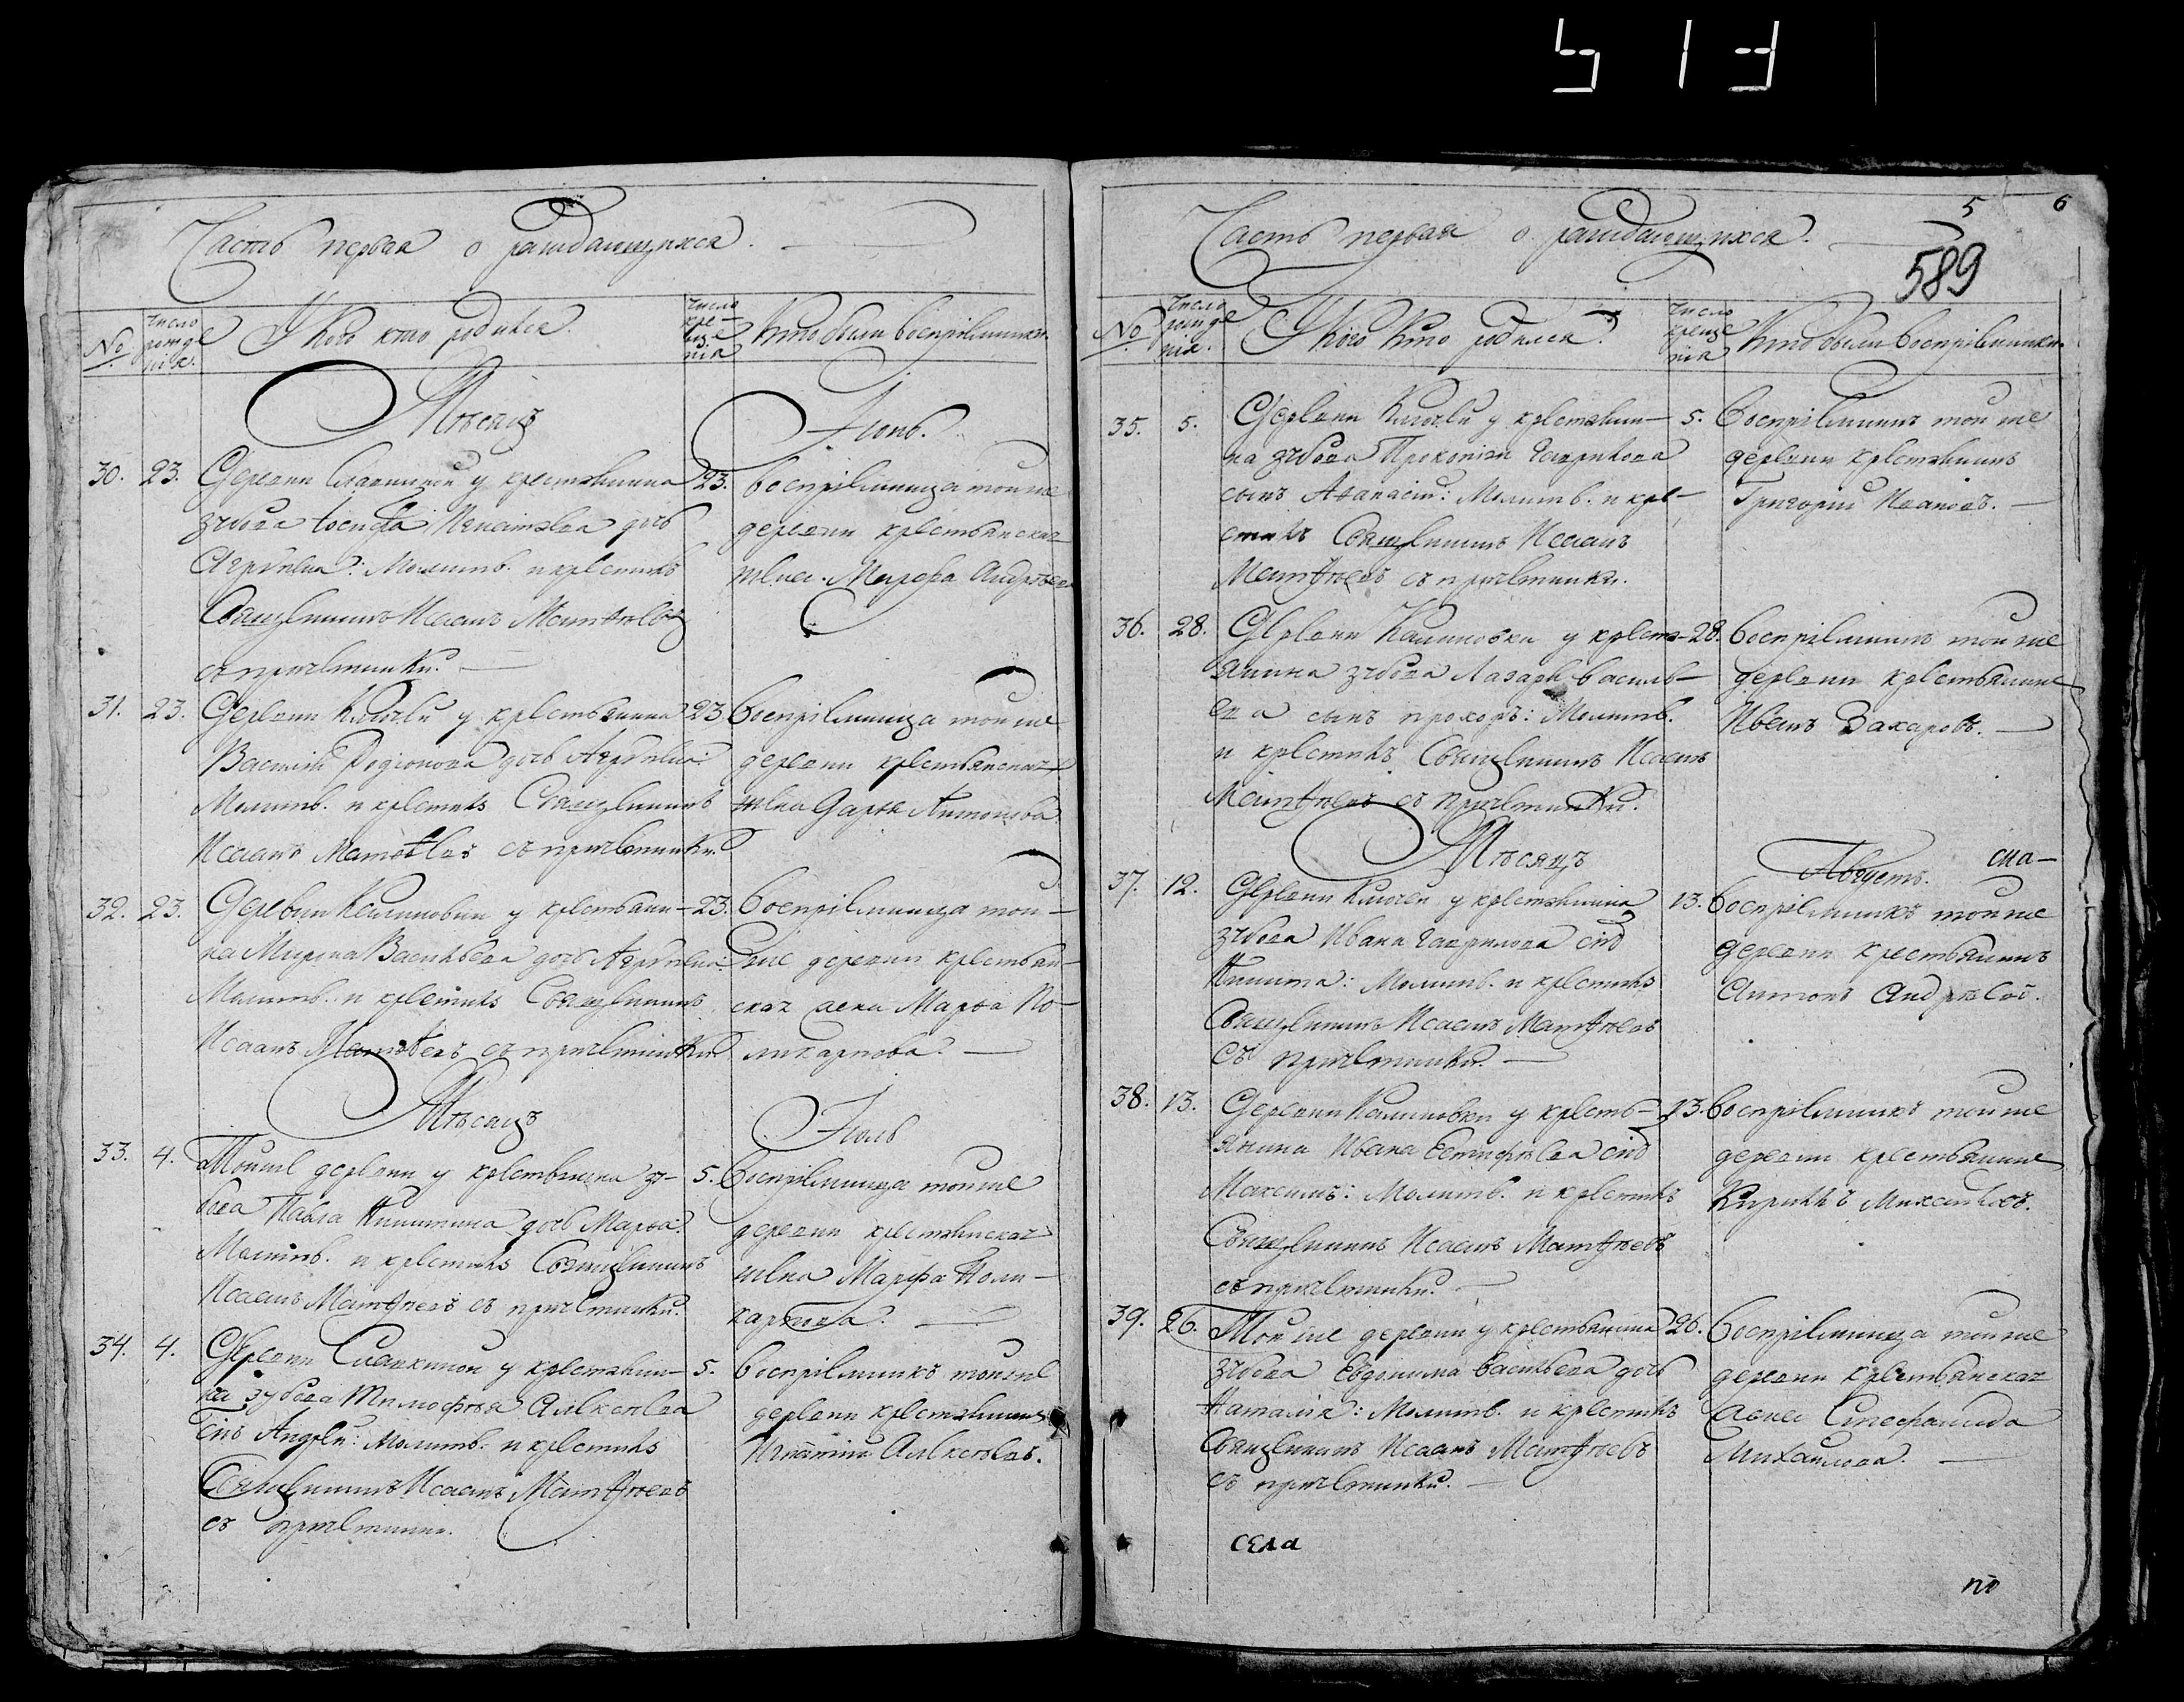 Часть первая о раждающихся.
No
число рожденія.
У Кого кто родился.
число крещенія
Кто были воспріемники.
Мѣсяцъ
Іюнь.
30. 23. Деревни Славкиной у крестьянина
зубова Іосифа Игнатьева дочь
Агрѵпена: Молитв. и крестилъ
Священникъ Исаакъ Матѳѣевъ
съ причетники.
23. воспріемница той же
деревни крестьянская
жена Марфа Андрѣева
31. 23. Деревни Ключей у крестьянина
Василія Родіонова дочь Агрѵпена:
Молитв. и крестилъ Священникъ
Исаакъ Матѳѣевъ съ причетники.
23 Воспріемница той же
деревни крестьянская
жена Дарья Антонова
32. 23. Деревни Калиновки у крестьяни-
на Васильева дочь Агрѵпена:
Молитв. и крестилъ Священникъ
Исаакъ Матѳѣевъ съ причетники
23. Воспріемница той-
же деревни крестьян-
ская Марѳа По-
ликарпова.
Мѣсяцъ
Іюль
33. 4. Той же деревни у крестьянина зу-
бова Павла Никитина дочь Марѳа:
Молитв. и крестилъ Священникъ
Исаакъ Матѳѣевъ съ причетники.
5. Воспріемница той же
деревни крестьянская
жена Марфа Поли-
карпова.
34. 4. Деревни Славкиной у крестьяни-
на зубова Тимофѣя Алексѣева
снъ Андрей: Молитв. и крестилъ
Священникъ Исаакъ Матѳѣевъ
съ причетники.
5. воспріемникъ той же
деревни крестьянинъ
Игнатій Алексѣевъ.
5 6
Часть первая о раждающихся.
589
No
число рожденія.
У Кого Кто родился.
число крещенія
Кто были Воспріемники.
35. 5. Деревни Ключей у крестьяни-
на зубова Прокопія Гаврилова
сынъ Аѳанасій: Молитв. и кре-
стилъ Священникъ Исаакъ
Матѳѣевъ съ причетники.
5. Воспріемникъ той же
деревни крестьянинъ
Григорій Ивановъ.
36. 28. Деревни Калиновки у кресть-
янина зубова Лазаря Василь-
ева сынъ прохоръ: Молитв.
и крестилъ Священникъ Исаакъ
Матѳѣевъ съ причетники.
28. Воспріемникъ той же
деревни крестьянинъ
Иванъ Захаровъ.
Мѣсяцъ
Августъ.
37. 12. Деревни Ключей у крестьянина
зубова Ивана Гаврилова снъ
Никита: Молитв. и крестилъ
Священникъ Исаакъ Матѳѣевъ
съ причетники.
13. Воспріемникъ той же
деревни крестьянинъ
Антонъ Андрѣевъ.
38. 13. Деревни Калиновки у кресть-
янина Ивана Естифѣева снъ
Максимъ: Молитв. и крестилъ
Священникъ Исаакъ Матѳѣевъ
съ причетники.
13. Воспріемникъ той же
деревни крестьянинъ
Кирилъ Михайловъ.
39. 26. Той же деревни у крестьянина
зубова Евдокима Васильева дочь
Наталія: Молитв. и крестилъ
Священникъ Исаакъ Матѳѣевъ
съ причетники.
26. Воспріемница той же
деревни крестьянская
девка Стефанида
Михайлова.
села
по